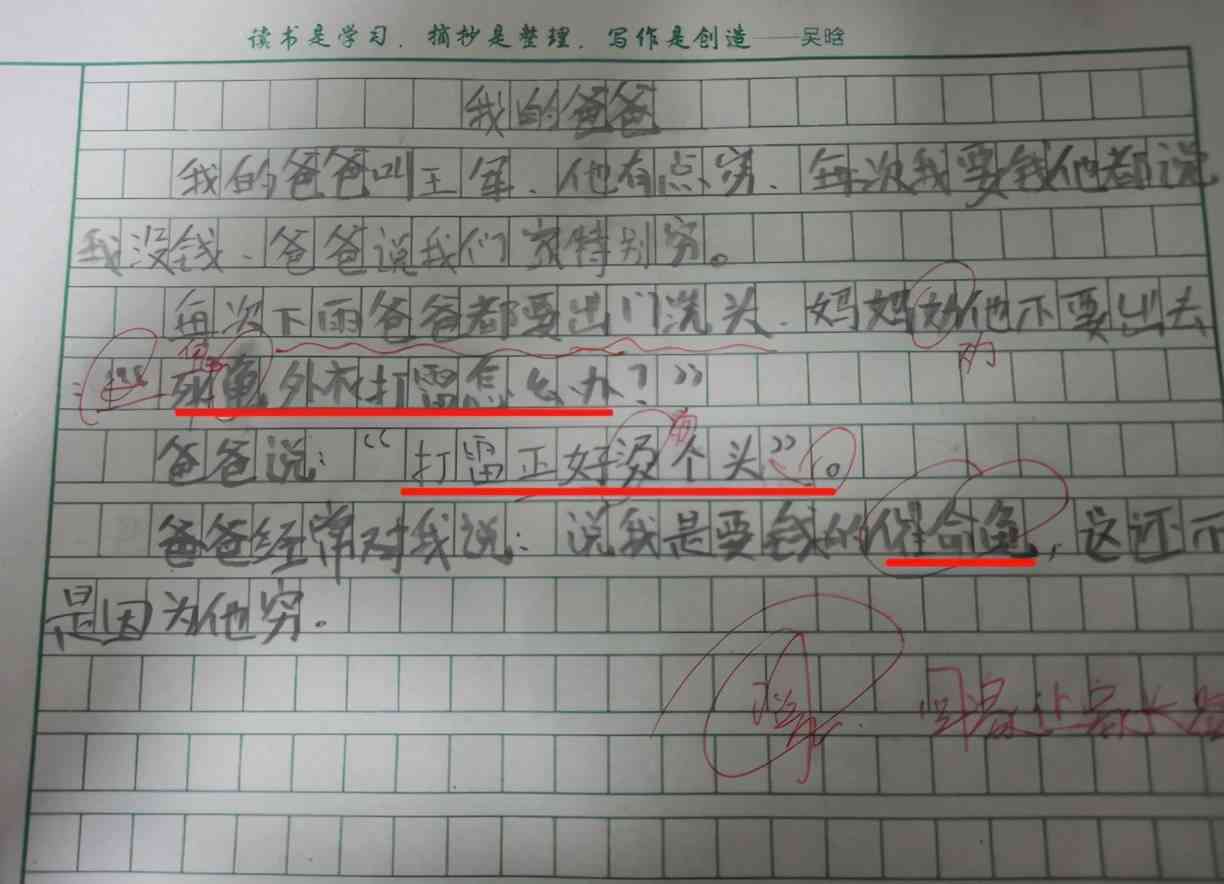 读书是学习，摘抄是整理，写作是创造——吴晗
我的爸爸
我的爸爸叫王军、他有点穷、每次我要钱他都说
我没钱、爸爸说我们家特别穷。
每次下雨爸爸都要出门洗头、妈妈他不要出去
：“外衣打雷怎么办？”
爸爸说：“打雷正好烫个头”。
爸爸经常对我说：说我是要钱的催命鬼，这还不
是因为他穷。
回家让家长